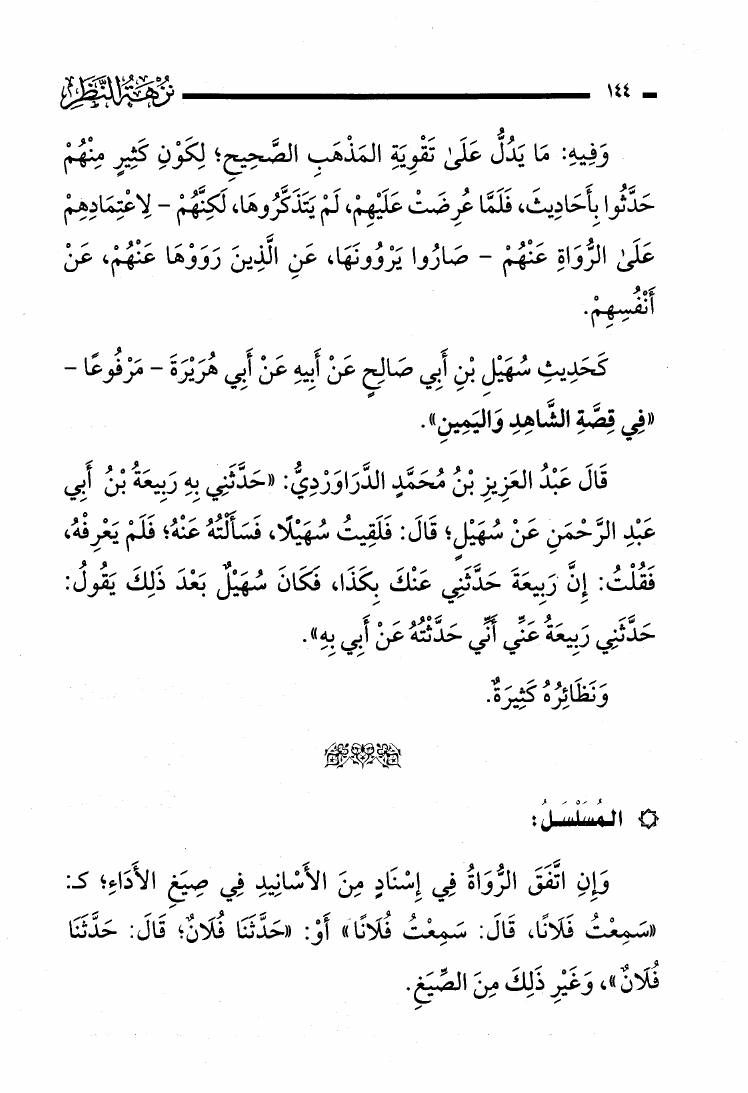 ١٤٤ نُزْهَةُ النَّظَرِ
وَفِيهِ: مَا يَدُلُّ عَلَىٰ تَقْوِيَةِ المَذْهَبِ الصَّحِيحِ؛ لِكَوْنِ كَثِيرٍ مِنْهُمْ
حَدَّثُوا بِأَحَادِيثَ، فَلَمَّا عُرِضَتْ عَلَيْهِمْ، لَمْ يَتَذَكَّرُوهَا، لَكِنَّهُمْ – لِاعْتِمَادِهِمْ
عَلَىٰ الرُّوَاةِ عَنْهُمْ – صَارُوا يَرْوُونَهَا، عَنِ الَّذِينَ رَوَوْهَا عَنْهُمْ، عَنْ
أَنْفُسِهِمْ.
كَحَدِيثِ سُهَيْلِ بْنِ أَبِي صَالِحٍ عَنْ أَبِيهِ عَنْ أَبِي هُرَيْرَةَ – مَرْفُوعًا –
«فِي قِصَّةِ الشَّاهِدِ وَاليَمِينِ».
قَالَ عَبْدُ العَزِيزِ بْنُ مُحَمَّدٍ الدَّرَاوَرْدِيُّ: «حَدَّثَنِي بِهِ رَبِيعَةُ بْنُ أَبِي
عَبْدِ الرَّحْمَنِ عَنْ سُهَيْلٍ؛ قَالَ: فَلَقِيتُ سُهَيْلًا، فَسَأَلْتُهُ عَنْهُ؛ فَلَمْ يَعْرِفْهُ،
فَقُلْتُ: إِنَّ رَبِيعَةَ حَدَّثَنِي عَنْكَ بِكَذَا، فَكَانَ سُهَيْلٌ بَعْدَ ذَلِكَ يَقُولُ:
حَدَّثَنِي رَبِيعَةُ عَنِّي أَنِّي حَدَّثْتُهُ عَنْ أَبِي بِهِ».
وَنَظَائِرُهُ كَثِيرَةٌ.
المُسَلْسَلُ:
وَإِنِ اتَّفَقَ الرُّوَاةُ فِي إِسْنَادٍ مِنَ الأَسَانِيدِ فِي صِيَغِ الأَدَاءِ؛ كـ:
«سَمِعْتُ فَلَانًا، قَالَ: سَمِعْتُ فُلَانًا» أَوْ: «حَدَّثَنَا فُلَانٌ؛ قَالَ: حَدَّثَنَا
فُلَانٌ»، وَغَيْرِ ذَلِكَ مِنَ الصِّيَغِ.